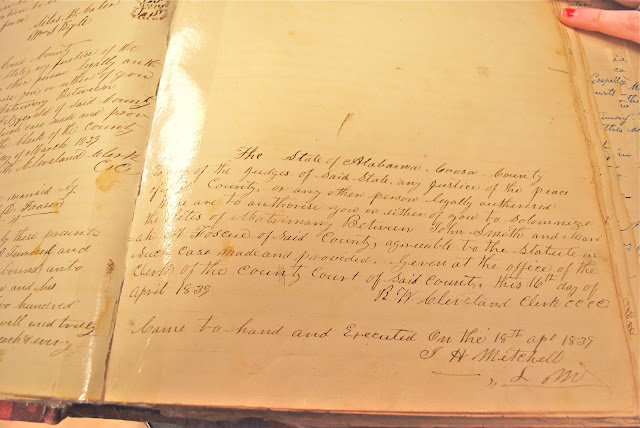 Niles M. 
Coosa County
State, any Justice of the
other person legally auth
ise you, or either of you
Matrimony Between
Fitzgerald of Said County
such case made and prov
the clerk of the County
day of March 1839
W Cleveland Clerk
CCC
married by
D. Frasor
by these present
Samuel and
bound unto
and his
two hundred
well and truly
The State of Alabama Coosa County
To any of the Judges of Said State, any Justice of the peace
of said County, or any other person legally authorised
These are to authorise you or either of you to Solemnize
the Rites of Matrimony Between John Smith and
ah Ast Foscue of Said County, agreeable to the Statute in
such case made and provided. Given at the office of the
Clerk of the County Court of Said County, this 16th day of
April 1839
R W Cleveland Clerk CCCC
Came to hand and Executed On the 18th apl 1839
J H Mitchell